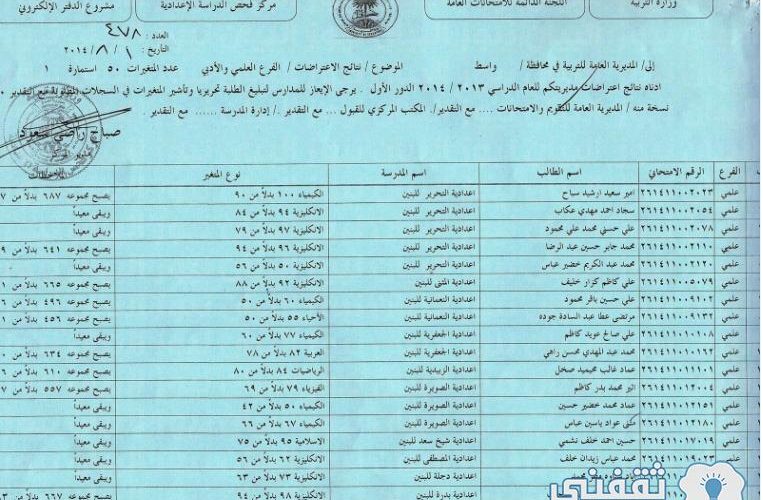 وزارة التربية
اللجنة الدائمة للامتحانات العامة
مركز فحص الدراسة الإعدادية
مشروع الدفتر الإلكتروني
العدد: ٤٧٨
التاريخ: ١ / ٨ / ٢٠١٤
إلى/ المديرية العامة للتربية في محافظة / واسط الموضوع / نتائج الاعتراضات / الفرع العلمي والأدبي عدد المتغيرات ٥٠ استمارة ١
ادناه نتائج اعتراضات مديريتكم للعام الدراسي ٢٠١٣ / ٢٠١٤ الدور الأول . يرجى الإيعاز للمدارس لتبليغ الطلبة تحريريا وتأشير المتغيرات في السجلات مع التقدير
نسخة منه / المديرية العامة للتقويم والامتحانات .... مع التقدير/. المكتب المركزي للقبول .. مع التقدير ./ إدارة المدرسة ...... مع التقدير .
صباح راضي سعود
مدير المركز
الفرع الرقم الامتحاني اسم الطالب اسم المدرسة نوع المتغير
علمي ٢٦١٤١١٠٠٢٠٢٣ امير سعيد ارشيد سباح اعدادية التحرير للبنين الكيمياء ١٠٠ بدلاً من ٩٠ يصبح مجموعه ٦٨٧ بدلاً من
علمي ٢٦١٤١١٠٠٢٠٥٤ سجاد احمد مهدي عكاب اعدادية التحرير للبنين الانكليزية ٩٤ بدلاً من ٨٤ ويبقى معيداً
علمي ٢٦١٤١١٠٠٢٠٧٨ علي حسني محمد علي محمود اعدادية التحرير للبنين الانكليزية ٩٧ بدلاً من ٧٩ ويبقى معيداً
علمي ٢٦١٤١١٠٠٢١١٠ محمد جابر حسين عبد الرضا اعدادية التحرير للبنين الانكليزية ٩٦ بدلاً من ٩٤ يصبح مجموعه ٦٤١ بدلاً من
علمي ٢٦١٤١١٠٠٢١٢٠ محمد عبد الكريم خضير عباس اعدادية التحرير للبنين الانكليزية ٥٠ بدلاً من ٥٦ ويبقى معيداً
علمي ٢٦١٤١١٠٠٥٠٧٩ علي كاظم كزار خليف اعدادية المثنى للبنين الانكليزية ٩٢ بدلاً من ٨٨ يصبح مجموعه ٦٦٥ بدلاً من
علمي ٢٦١٤١١٠٠٩١٠٢ علي حسين باقر محمود اعدادية النعمانية للبنين الكيمياء ٦٠ بدلاً من ٥٠ يصبح مجموعه ٤٩٦ بدلاً من
علمي ٢٦١٤١١٠٠٩١٣٢ مرتضى عطا عبد السادة جوده اعدادية النعمانية للبنين الأحياء ٥٥ بدلاً من ٥٠ يصبح مجموعه ٤٥٦ بدلاً من
علمي ٢٦١٤١١٠١٠١٠٨ علي صالح عويد كاظم اعدادية الجعفرية للبنين الكيمياء ٧٧ بدلاً من ٦٠ ويبقى معيداً
علمي ٢٦١٤١١٠١٠١٦٢ محمد عبد المهدي محسن راهي اعدادية الجعفرية للبنين العربية ٨٢ بدلاً من ٧٨ يصبح مجموعه ٦٣٤ بدلاً من
علمي ٢٦١٤١١٠١١١٠١ عماد غالب محيميد صخل اعدادية الزبيدية للبنين الرياضيات ٨٤ بدلاً من ٨٠ يصبح مجموعه ٦١٠ بدلاً من
علمي ٢٦١٤١١٠١٢٠٠٤ اثير محمد بدر كاظم اعدادية الصويرة للبنين الفيزياء ٧٩ بدلاً من ٦٩ يصبح مجموعه ٥٥٧ بدلاً من
علمي ٢٦١٤١١٠١٢١٥١ عماد محمد خضير حسين اعدادية الصويرة للبنين الكيمياء ٥٠ بدلاً من ٤٢ ويبقى معيداً
علمي ٢٦١٤١١٠١٢١٨٠ مثنى عواد ياسين عباس اعدادية الصويرة للبنين الكيمياء ٦٧ بدلاً من ٦٦ ويبقى معيداً
علمي ٢٦١٤١١٠١٧٠١٩ حسين احمد خلف نشمي اعدادية شيخ سعد للبنين الاسلامية ٩٥ بدلاً من ٧٥ ويبقى معيداً
علمي ٢٦١٤١١٠١٩٠٢٣ محمد عباس زيدان خلف اعدادية المصطفى للبنين الانكليزية ٦٢ بدلاً من ٥٦ ويبقى معيداً
اعدادية دجلة للبنين الانكليزية ٧٣ بدلاً من ٦٣ ويبقى معيداً
اعدادية بدرة للبنين الانكليزية ٩٨ بدلاً من ٩٤ يصبح مجموعه ٦٦٧ بدلاً من
ثقفني